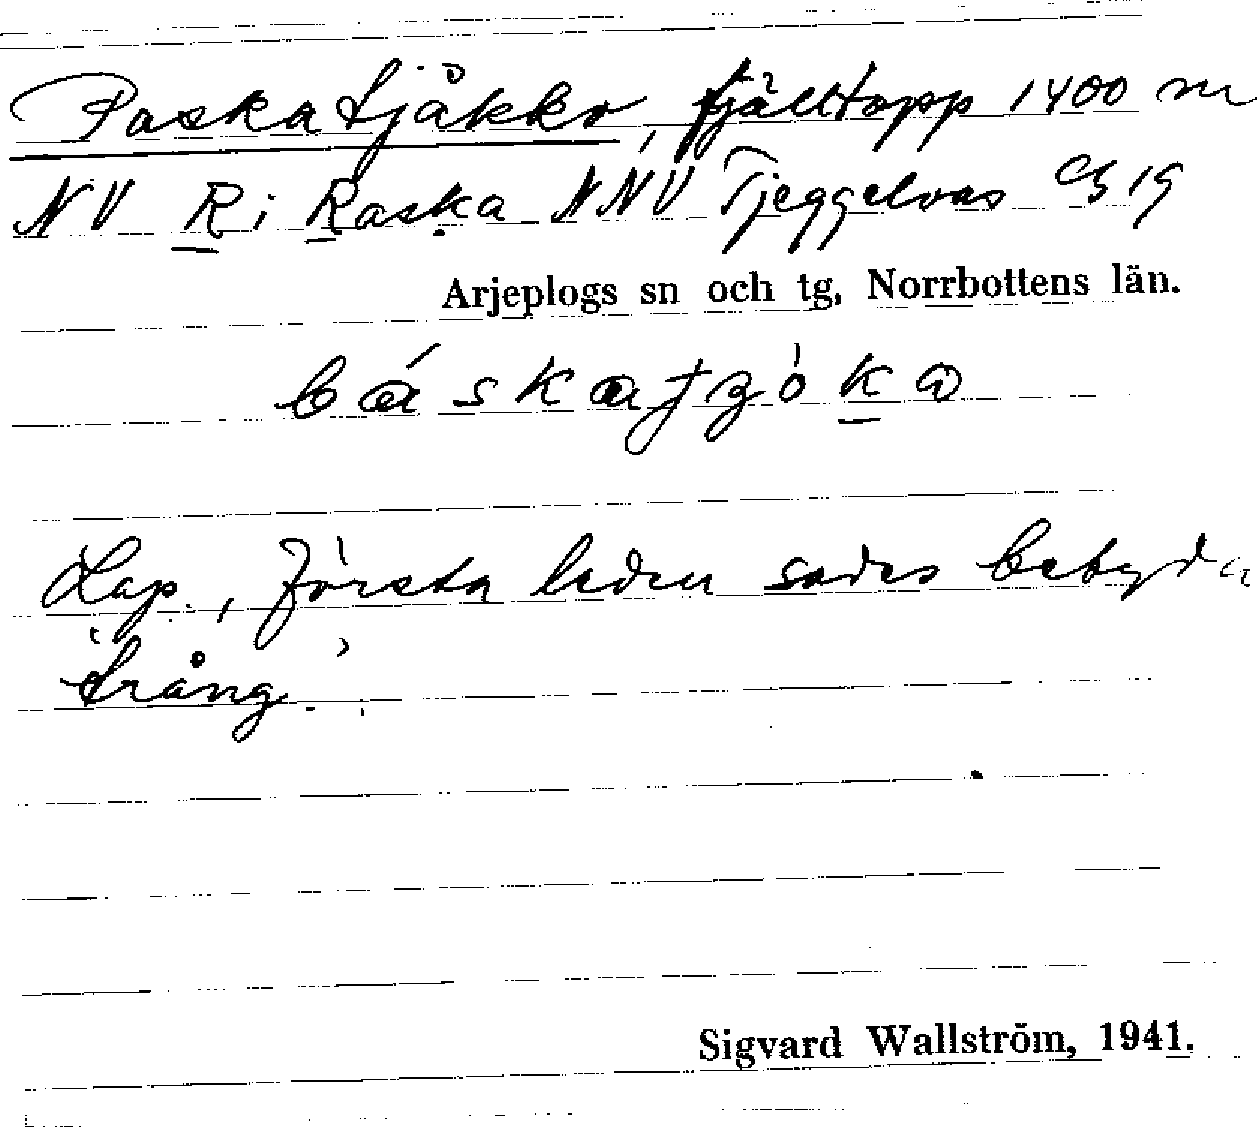 Paskatjåkko, fjälltopp 1400 m
NV R i Raska NNV Tjeggelvas
Arjeplogs sn och tg, Norrbottens län.
Lap., första leden sades betyda
'trång'.
Sigvard Wallström, 1941.